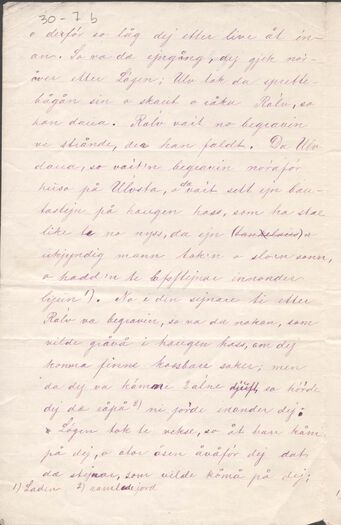 30-7 b
o derfór so låg dej etter live åt in-
an. So va da ejngång, dej gjek nór-
åver etter Lógen; Ulv tok då sprette-
bågån sin o skaut o råka Rólv, so
han daua. Rólv vait no begravin
ve strånde, der han faldt. Da Ulv
daua, so vait'n begravin nórafór
húso på Ulvsta, o da vait sett ejn bau-
tastejn på haugen hass, som ha stae
like te no nyss, da ejn
ukyndig mann tok'n o slora sonn,
o hadd'n te innonder
ljeun 1). No i din sejnare ti etter
Rólv va begravin, so va da nokon, som
vilde gråvå i haugen hass, om dej
komma finne kossbare saker; men
da dej va kåmne djúft, so hórde
dej da såpå 2) ni jórde inonder dej;
Lógen tok te vekse, so åt han kåm
på dej, o otor åsen åvåfór dej dat
da stejnar, som vilde kåmå på dej;
1) Laden 2) ramlede jord